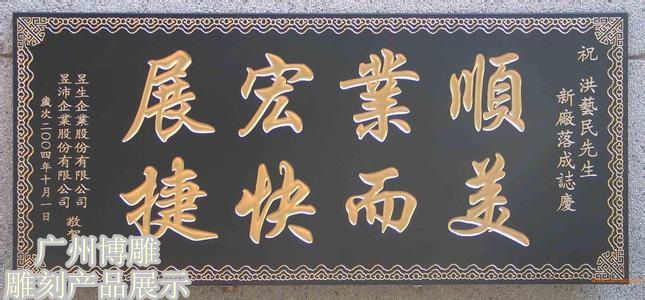 祝 洪藝民先生
新廠落成誌慶
順業宏展
美而快捷
昱生企業股份有限公司
昱沛企業股份有限公司
敬賀
歲次二〇〇四年十月一日
广州博雕
雕刻产品展示